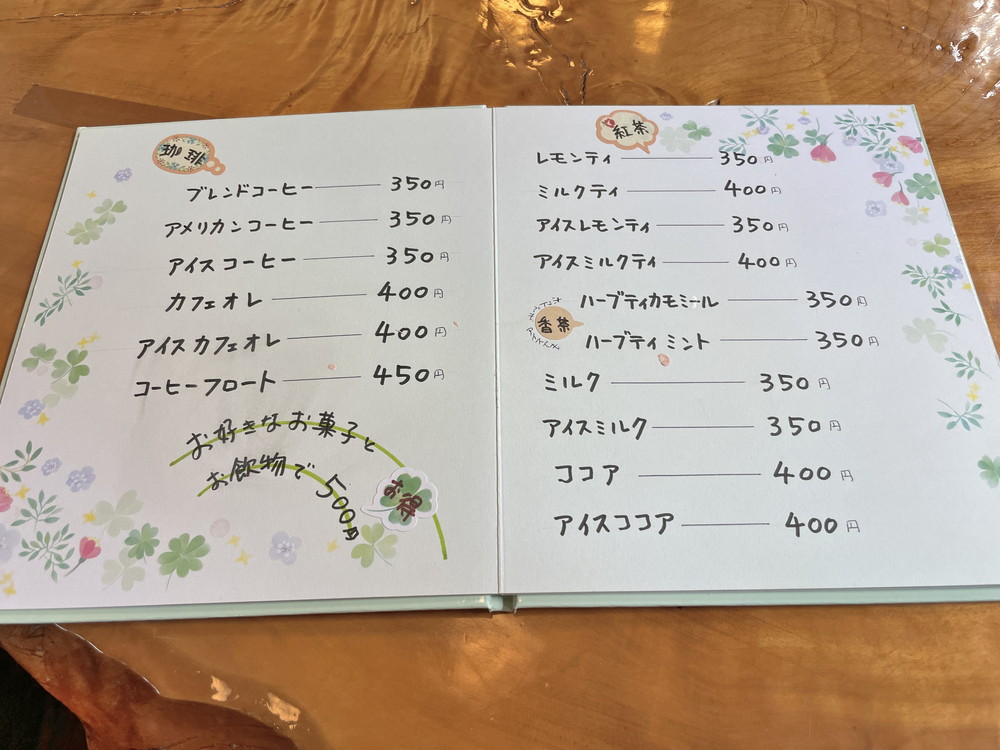 珈琲
ブレンドコーヒー 350円
アメリカンコーヒー 350円
アイスコーヒー 350円
カフェオレ 400円
アイスカフェオレ 400円
コーヒーフロート 450円
お好きなお菓子と
お飲物で 500円
お得
紅茶
レモンティ 350円
ミルクティ 400円
アイスレモンティ 350円
アイスミルクティ 400円
香茶
ハーブティカモミール 350円
ハーブティミント 350円
ミルク 350円
アイスミルク 350円
ココア 400円
アイスココア 400円